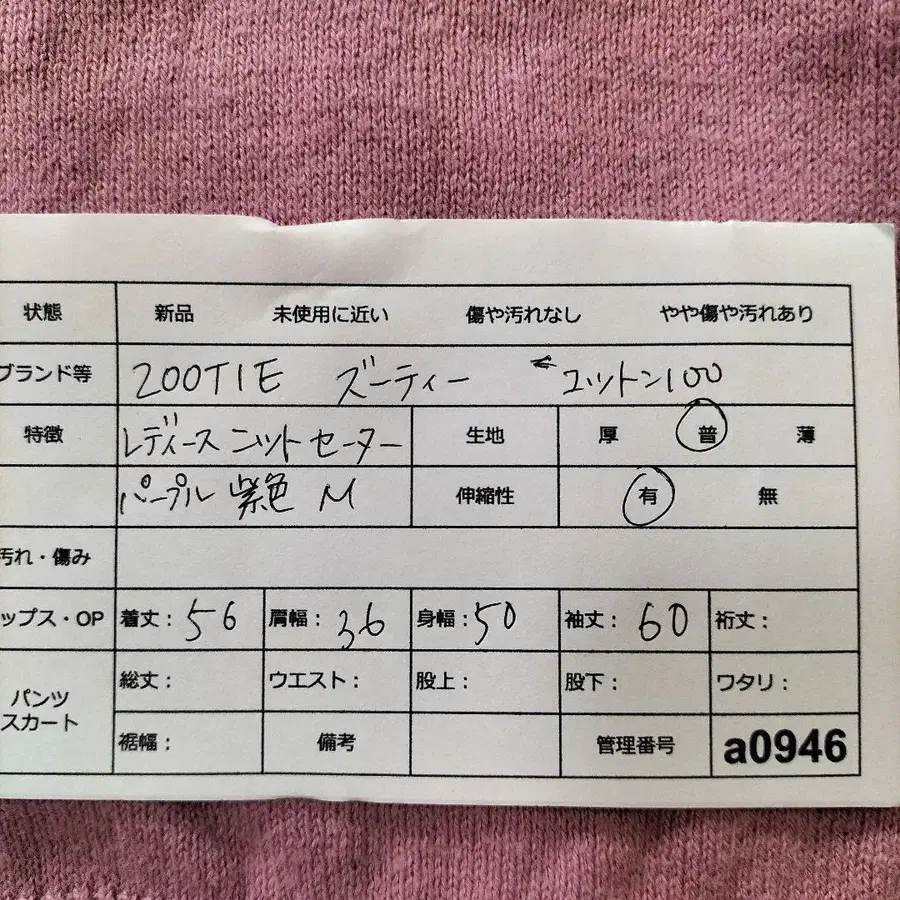 状態 新品 未使用に近い 傷や汚れなし やや傷や汚れあり
ブランド等 ZOOTIE ズーティー コットン100
特徴 レディース ニット セーター 生地 厚 普 薄
パープル 紫色 M 伸縮性 有 無
汚れ・傷み
ップス・OP 着丈: 56 肩幅: 36 身幅: 50 袖丈: 60 裄丈:
パンツ
スカート
総丈: ウエスト: 股上: 股下: ワタリ:
裾幅: 備考 管理番号 a0946